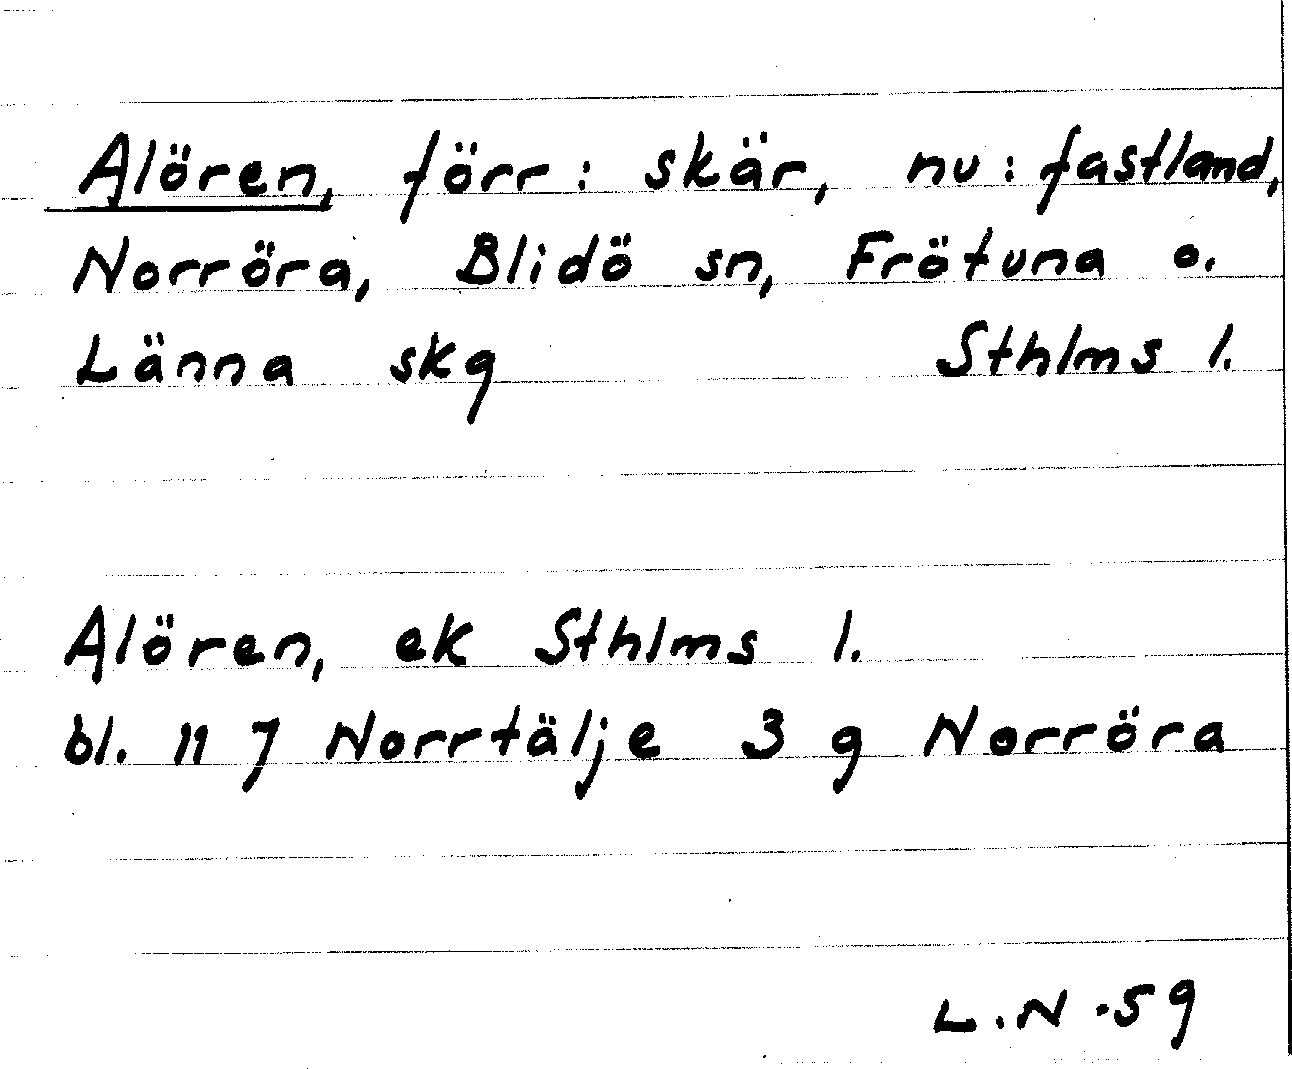 Alören, förr: skär, nu: fastland,
Norröra, Blidö sn, Frötuna o.
Länna skg Sthlms l.
Alören, ek Sthlms l.
bl. 11 7 Norrtälje 3 g Norröra
L.N -59